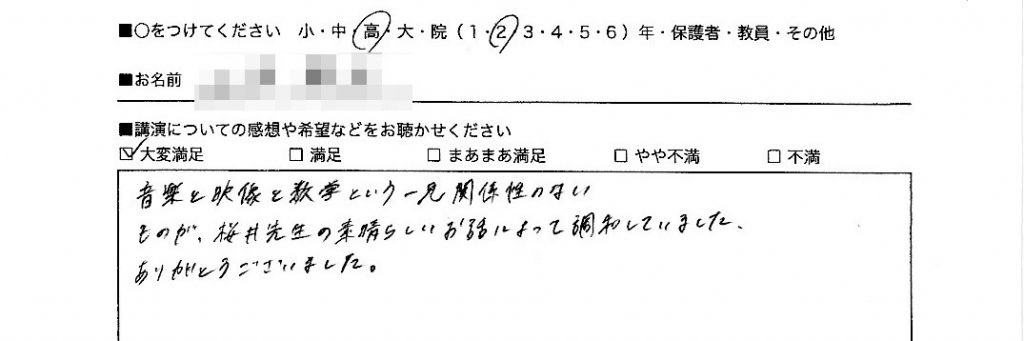 ■○をつけてください 小・中・高・大・院（1・2・3・4・5・6）年・保護者・教員・その他
■お名前
■講演についての感想や希望などをお聴かせください
☑大変満足 □満足 □まあまあ満足 □やや不満 □不満
音楽と映像と数学という一見関係性のない
ものが、桜井先生の素晴らしいお話によって調和していました、
ありがとうございました。